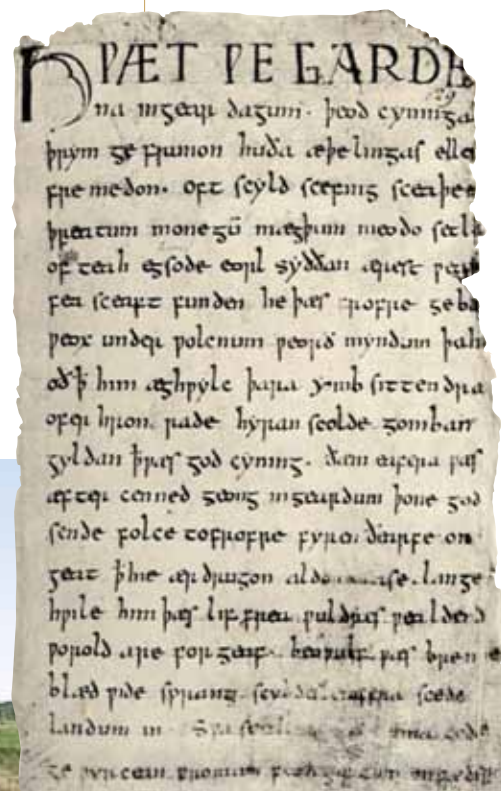 HǷÆT ǷE GARDE
na ingear dagum. þeod cyninga
þrym ge frunon huða æþelingas elle
fre medon. oft scyld scefing sceaþen
þreatum monegū mægþum meodo setla
of teah egsode eorl syððan ærest ƿear
fea sceaft funden he þæs frofre geba
ƿeox under ƿolcnum ƿeorð myndum þah
oð ꝥ him æghƿylc þara ymb sittendra
ofer hron rade hyran scolde gomban
gyldan ꝥ ƿæs god cyning. ðæm eafera ƿæs
æfter cenned geong ingeardum þone god
sende folce tofrofre fyren ðearfe on
geat ꝥ hie ær drugon lange
hƿile him þæs lif frea ƿuldres ƿealdend
ƿorold are for geaf. beoƿulf ƿæs breme
blæd ƿide sprang scyldes eafera scede
landum in Sƿa
ge ƿyrcean fromum feoh giftum